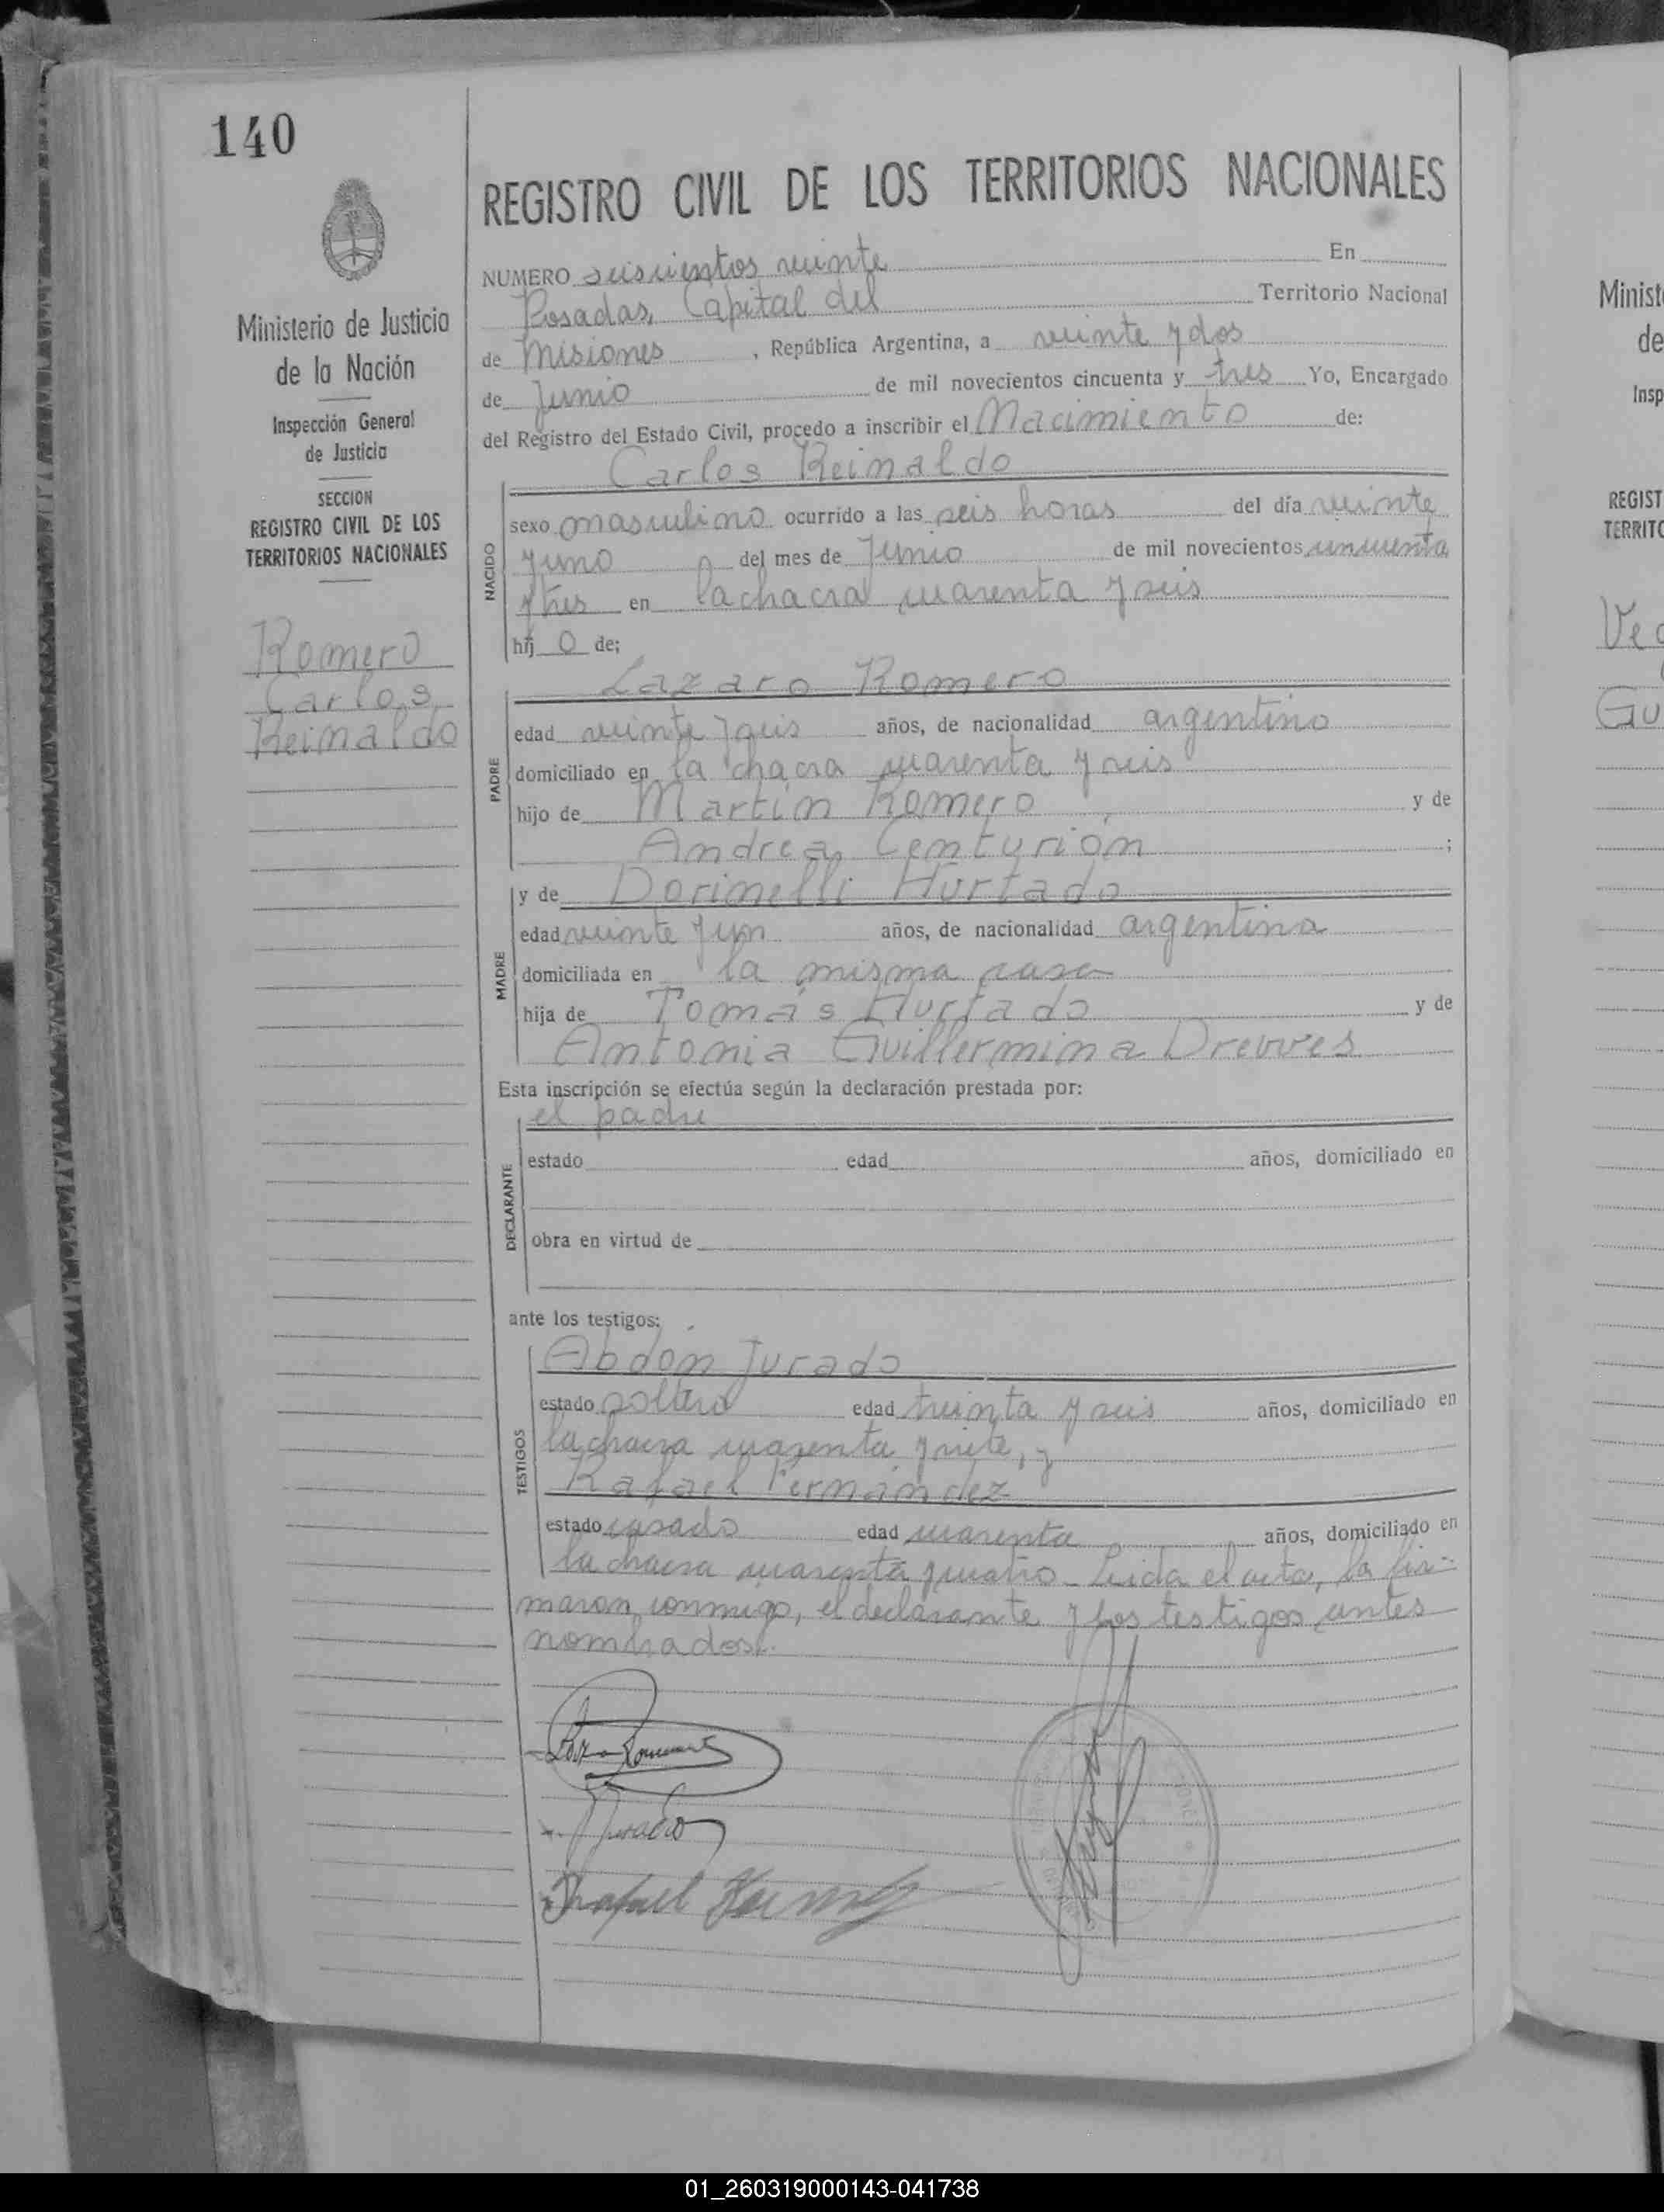 140
REGISTRO CIVIL DE LOS TERRITORIOS NACIONALES
Ministerio de Justicia
de la Nación
Inspección General
de Justicia
SECCION
REGISTRO CIVIL DE LOS
TERRITORIOS NACIONALES
Romero
Carlos
Reinaldo
NUMERO seiscientos veinte En
Posadas, Capital del Territorio Nacional
de Misiones, República Argentina, a veinte y dos
de Junio de mil novecientos cincuenta y tres Yo, Encargado
del Registro del Estado Civil, procedo a inscribir el Nacimiento de:
Carlos Reinaldo
NACIDO
sexo masculino ocurrido a las seis horas del día veinte
y uno del mes de Junio de mil novecientos cincuenta
y tres en la chacra cuarenta y seis
hij o de;
Lazaro Romero
PADRE
edad veinte y seis años, de nacionalidad argentino
domiciliado en la chacra cuarenta y seis
hijo de Martín Romero y de
Andrea Centurión ;
MADRE
y de Dorinelli Hurtado
edad veinte y un años, de nacionalidad argentina
domiciliada en la misma casa
hija de Tomás Hurtado y de
Antonia Guillermina Drevves
Esta inscripción se efectúa según la declaración prestada por:
el padre
DECLARANTE
estado edad años, domiciliado en
obra en virtud de
ante los testigos:
Abdón Jurado
TESTIGOS
estado soltero edad treinta y seis años, domiciliado en
la chacra cuarenta y siete, y
Rafael Fernández
estado casado edad cuarenta años, domiciliado en
la chacra cuarenta y cuatro. Leida el acta, la fir-
maron conmigo, el declarante y los testigos antes
nombrados.
Jurado
Rafael
Minist
de
Insp
REGIST
TERRITO
Ve
Gu
01_260319000143-041738